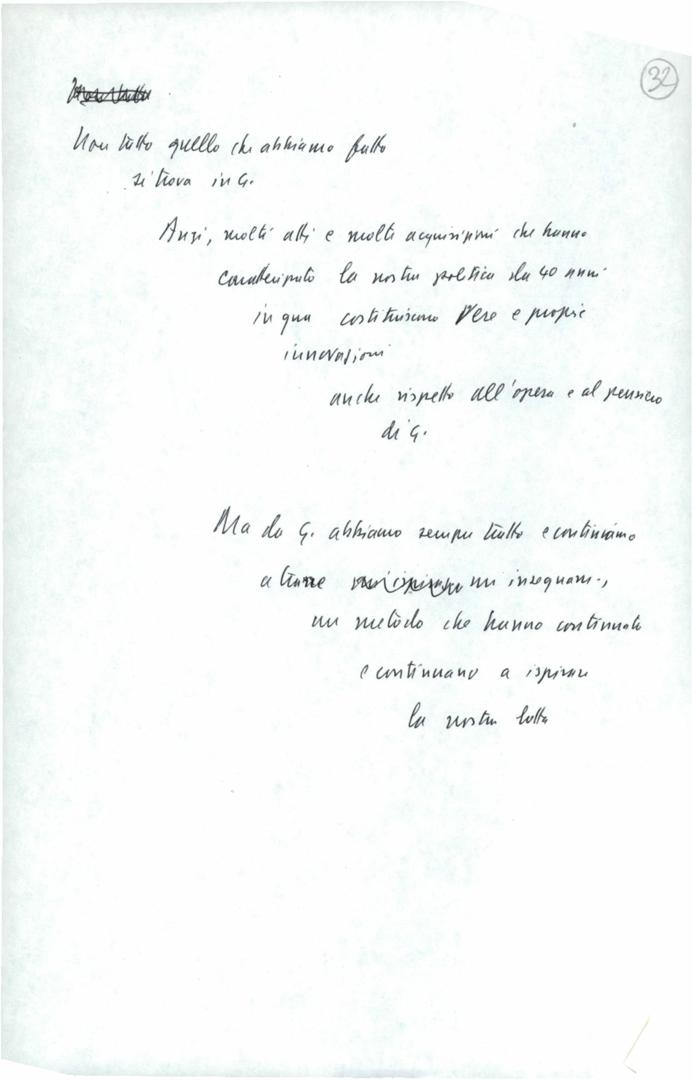 32
Non tutto quello che abbiamo fatto
si trova in G.
Anzi, molti atti e molte acquisizioni che hanno
caratterizzato la nostra politica da 40 anni
in qua costituiscono vere e proprie
innovazioni
anche rispetto all'opera e al pensiero
di G.
Ma da G. abbiamo sempre tratto e continuiamo
a trarre un insegnam.,
un metodo che hanno continuato
e continuano a ispirare
la nostra lotta